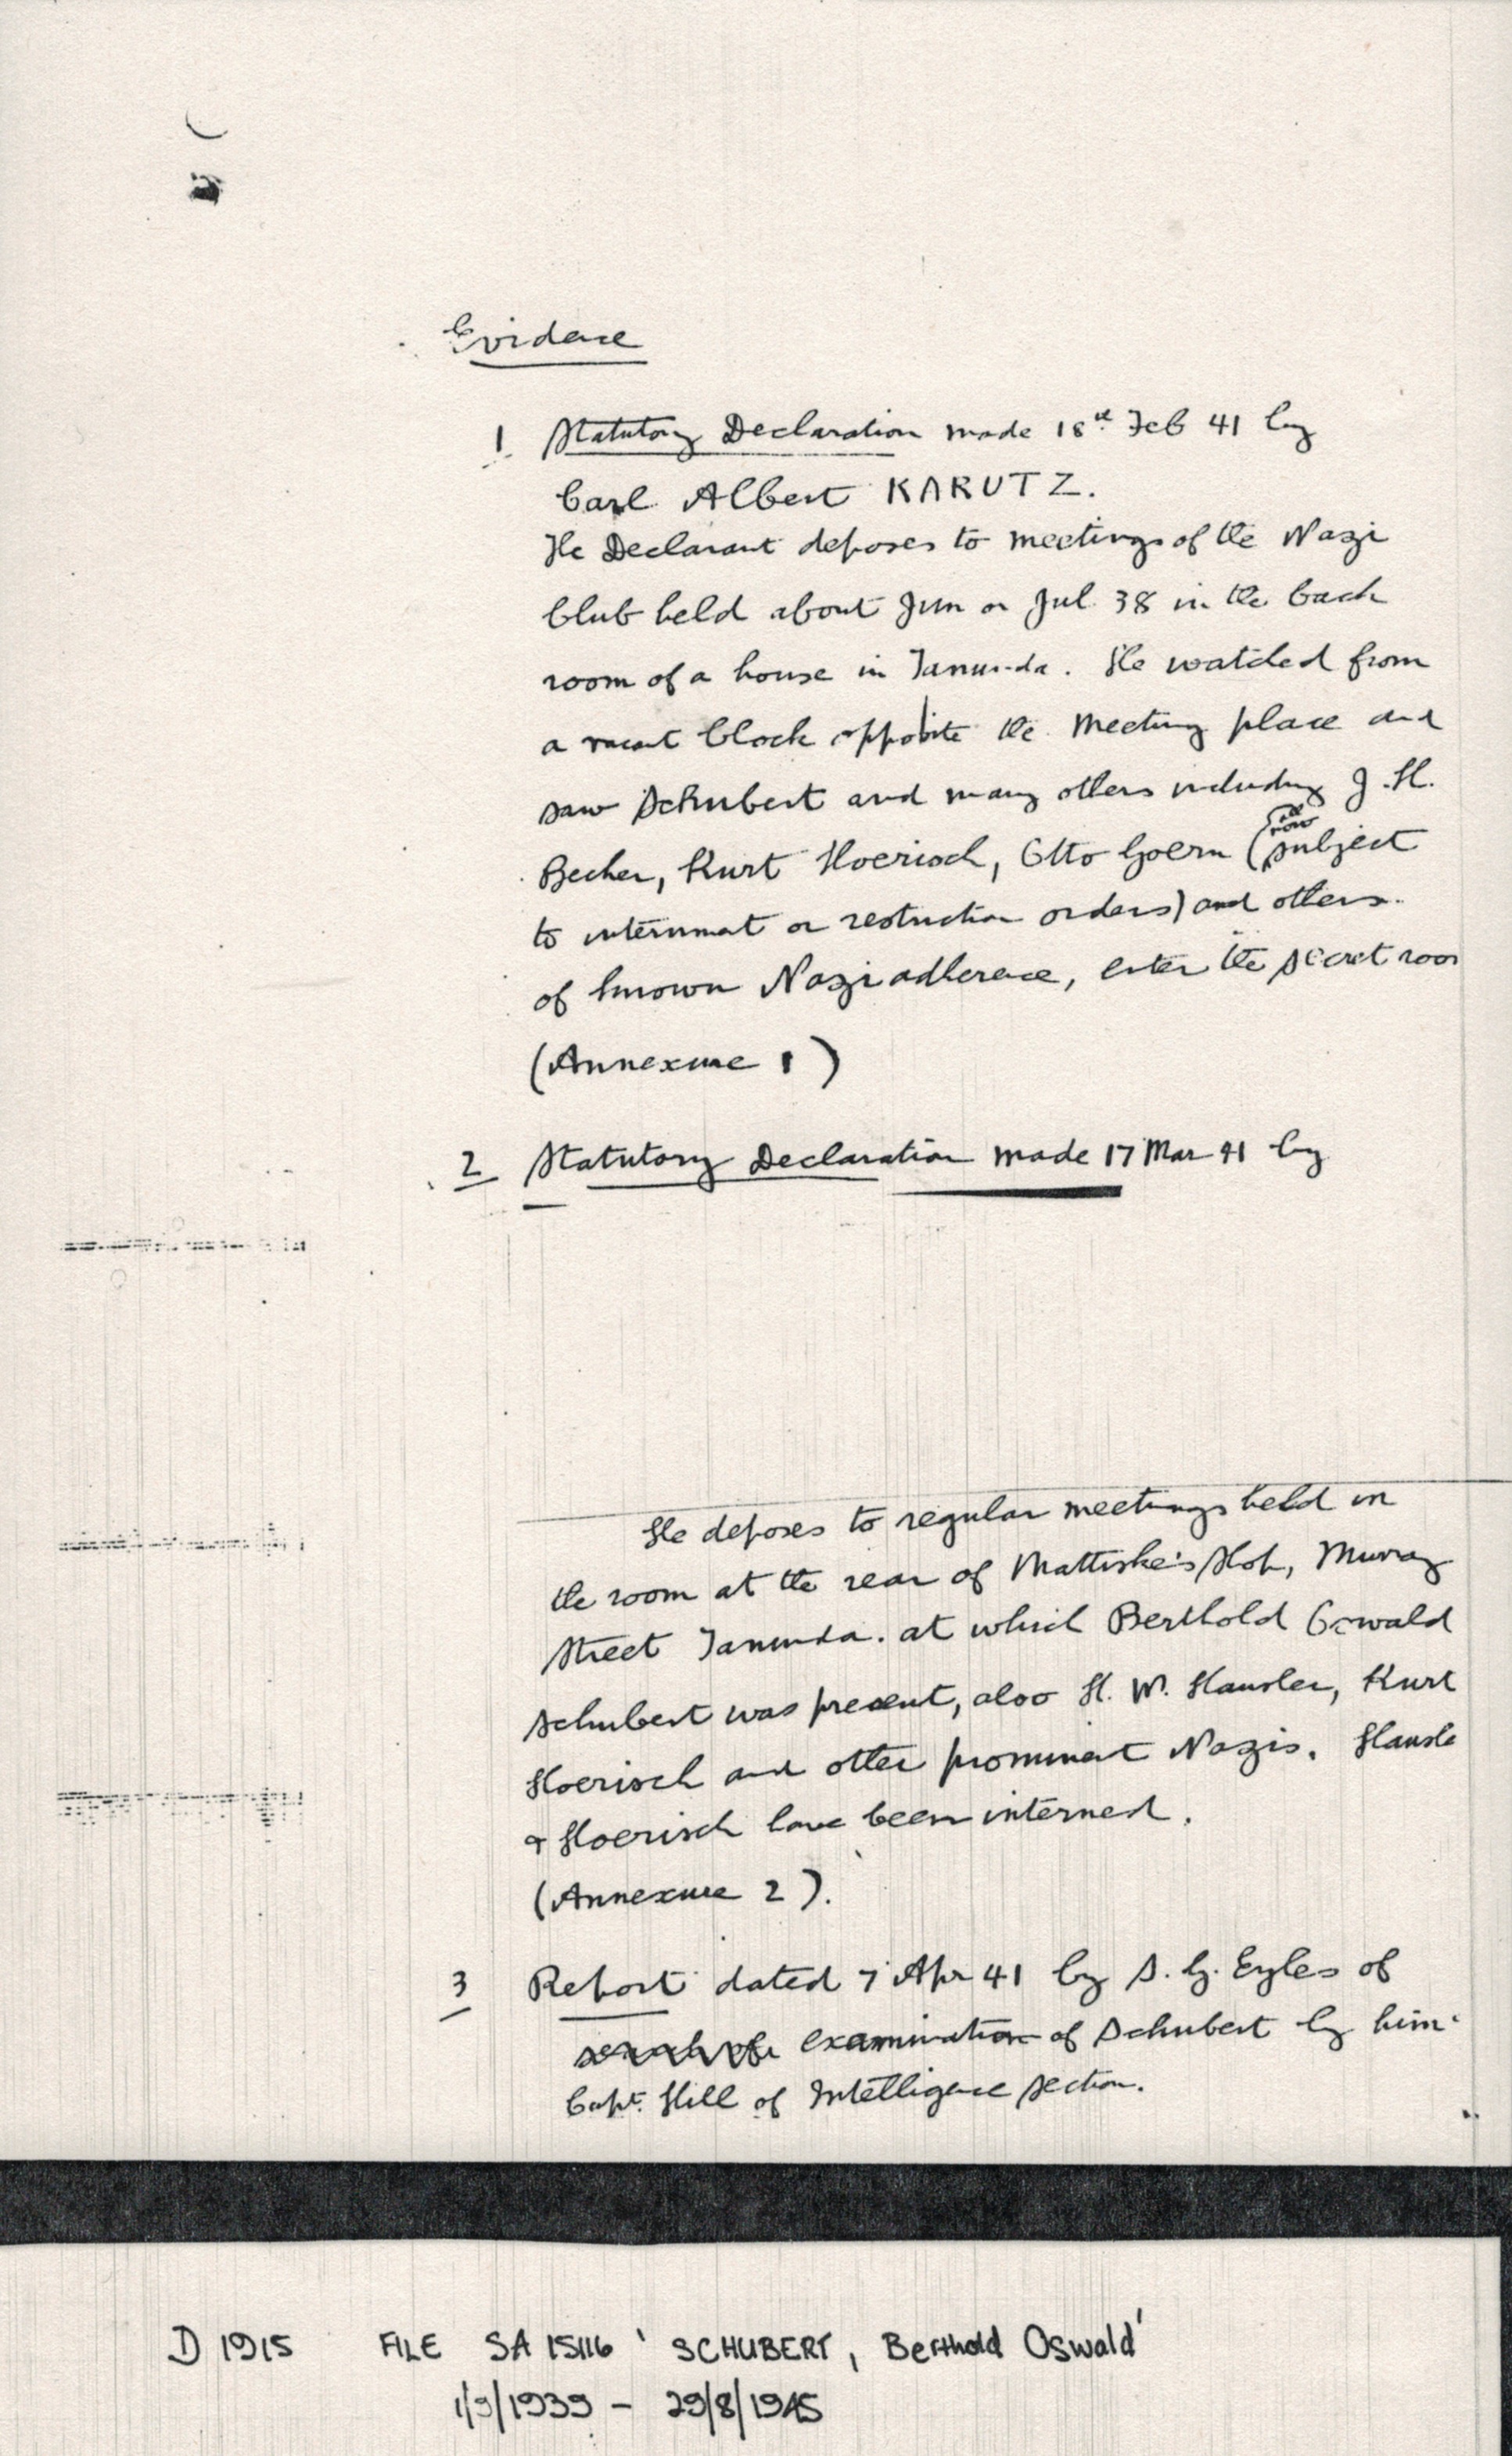 Evidence
1 Statutory Declaration made 18th Feb 41 by
Carl Albert KARUTZ.
The Declarant deposes to meetings of the Nazi
Club held about Jun or Jul 38 in the back
room of a house in Tanunda. He watched from
a vacant block opposite the meeting place and
saw Schubert and many others including J. H.
Becker, Kurt Hoerisch, Otto Goern (all now subject
to internment or restriction orders) and others
of known Nazi adherence, enter the secret room
(Annexure 1)
2 Statutory Declaration made 17 Mar 41 by
He deposes to regular meetings held in
the room at the rear of Mattiske's Shop, Murray
Street Tanunda. at which Berthold Oswald
Schubert was present, also H. W. Hausler, Kurt
Hoerisch and other prominent Nazis. Hausle
& Hoerisch have been interned.
(Annexure 2).
3 Report dated 7 Apr 41 by S. G. Eyles of
examination of Schubert by him
Capt. Hill of Intelligence Section.
D 1915 FILE SA 15116 'SCHUBERT, Berthold Oswald'
1/9/1939 - 29/8/1945